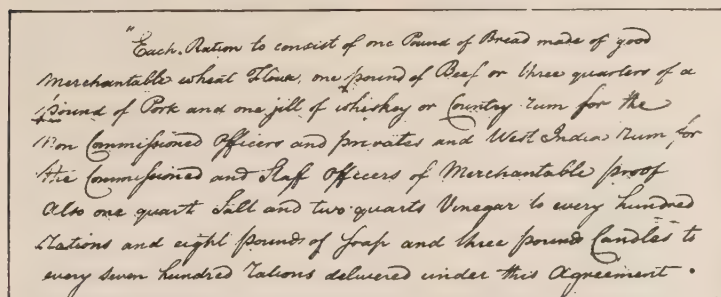 "Each Ration to consist of one Pound of Bread made of good
Merchantable wheat Flour, one pound of Beef or three quarters of a
pound of Pork and one jill of whiskey or Country rum for the
Non Commissioned Officers and privates and West India rum for
the Commissioned and Staff Officers of Merchantable proof
Also one quart Salt and two quarts Vinegar to every hundred
Rations and eight pounds of Soap and three pounds Candles to
every seven hundred rations delivered under this Agreement.